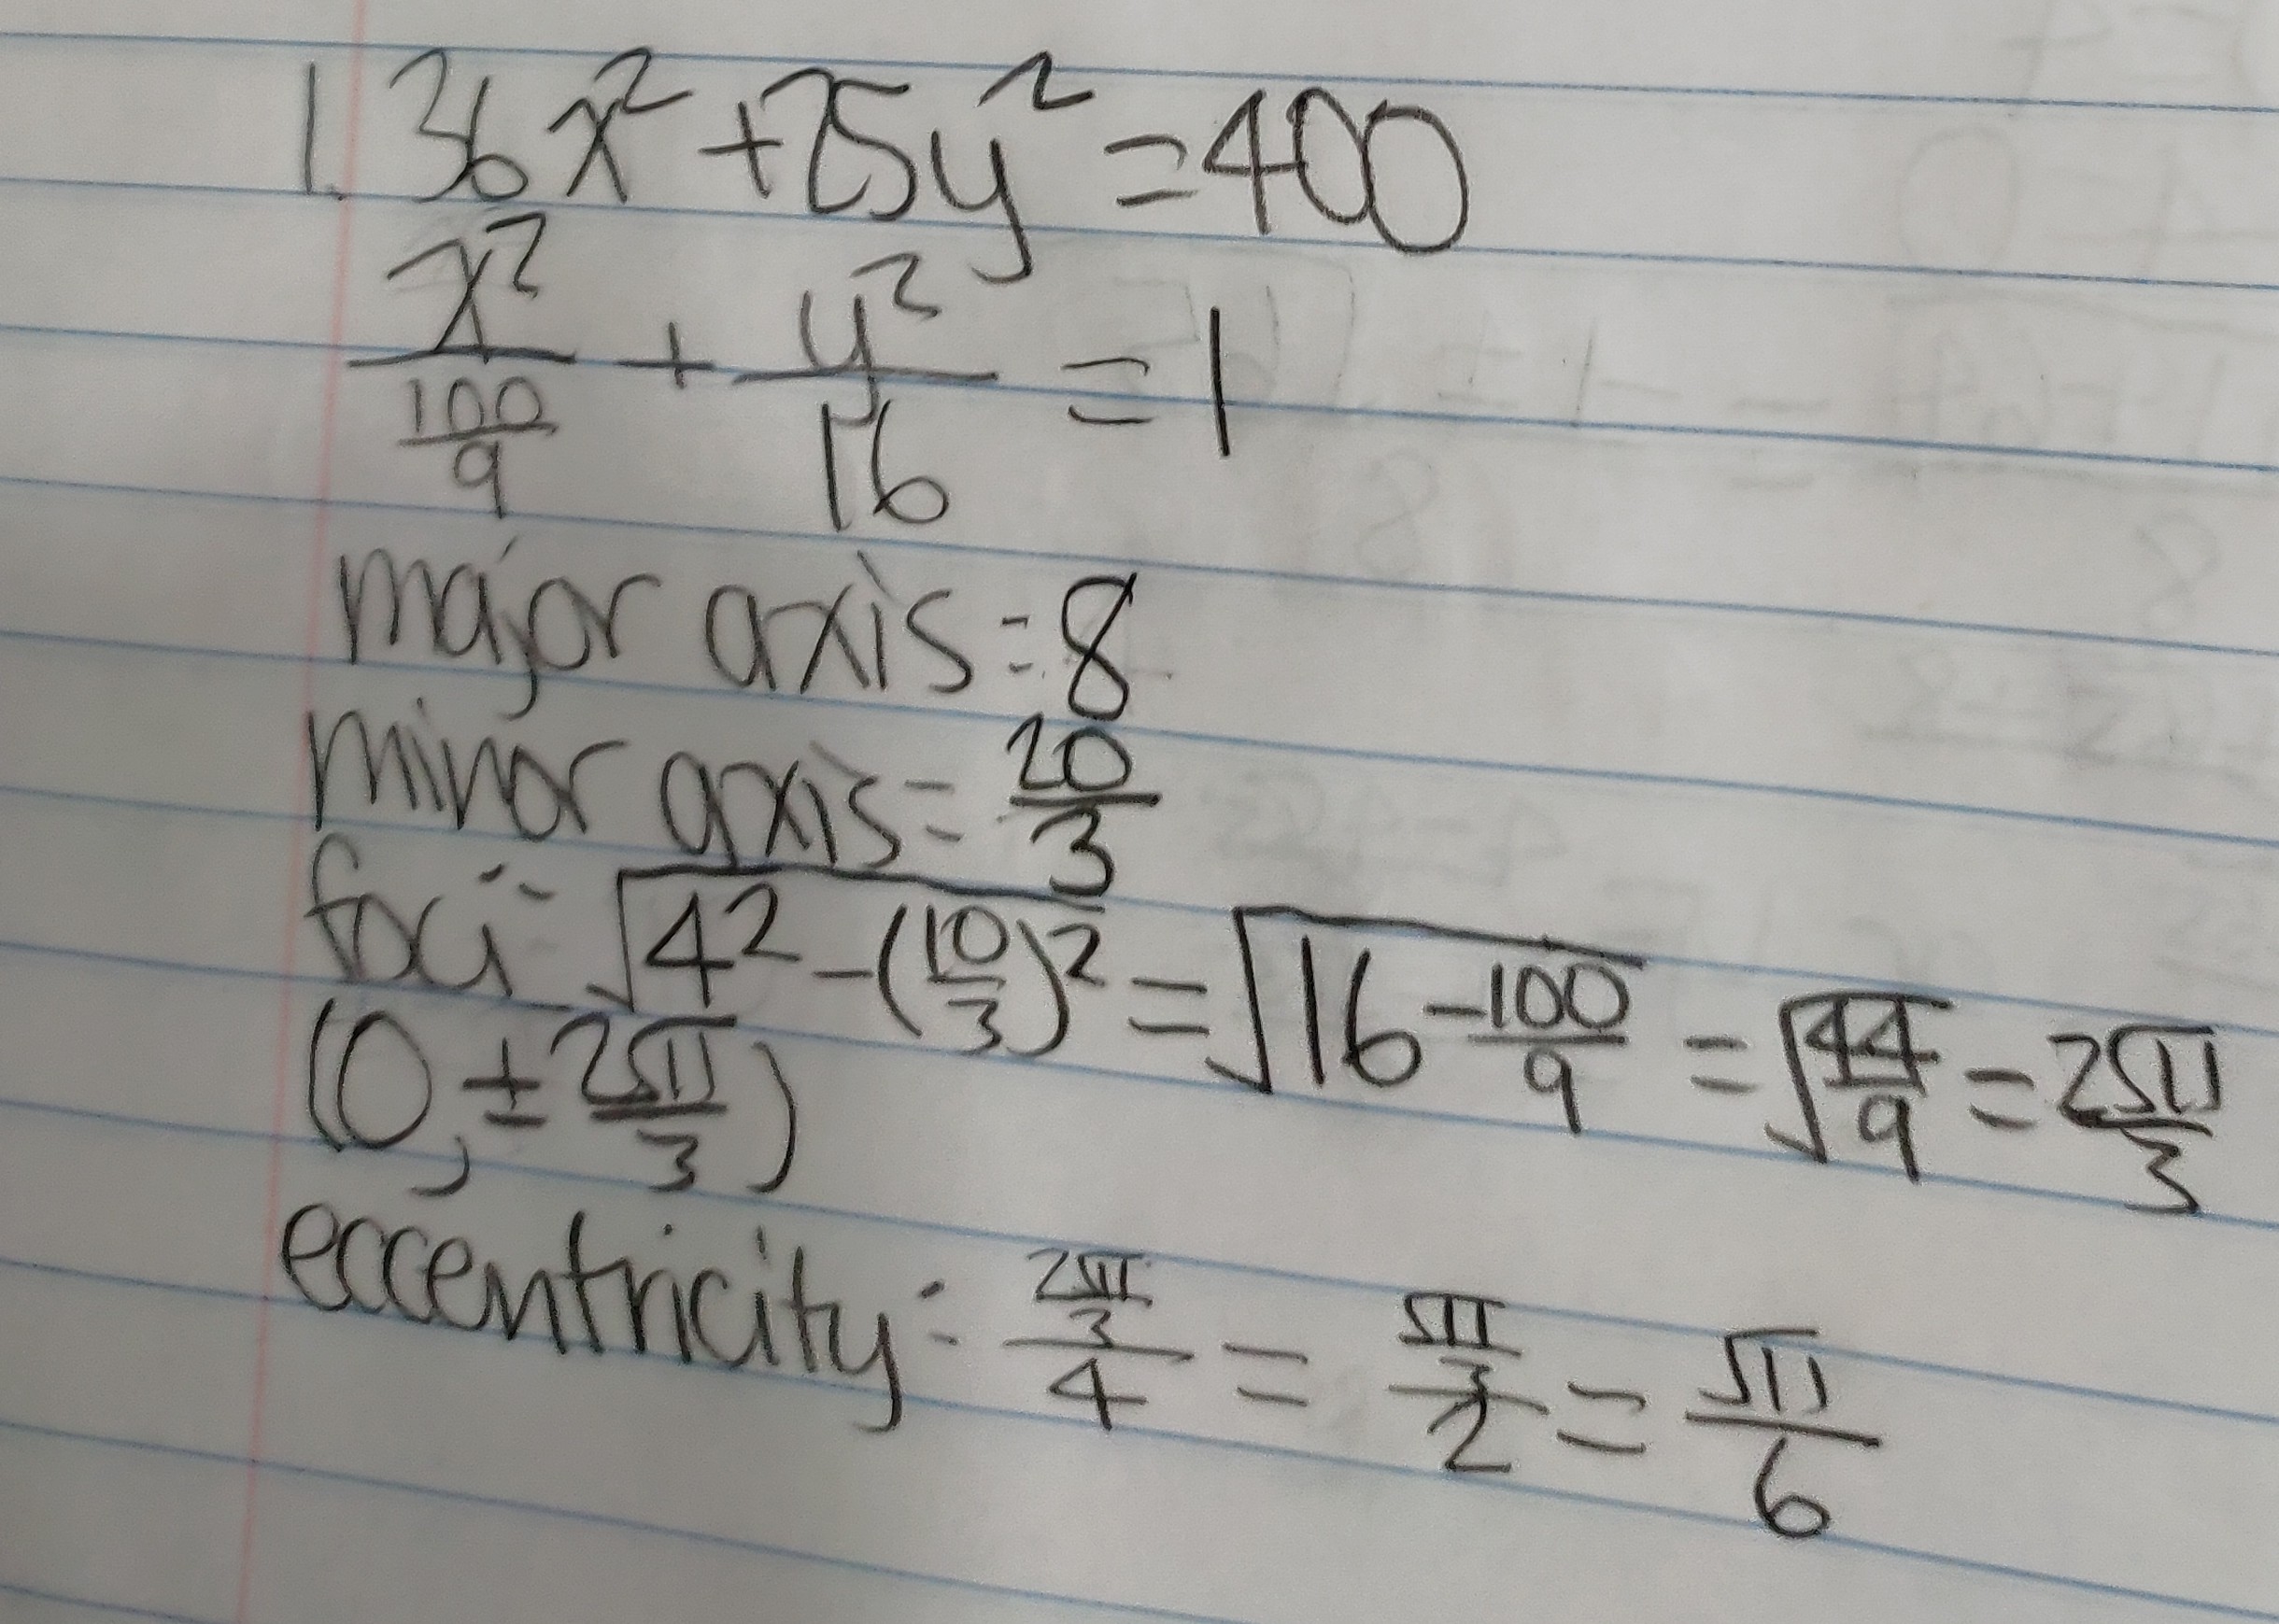 1. 36x² + 25y² = 400
x²/(100/9) + y²/16 = 1
major axis: 8
minor axis = 20/3
foci = √(4² - (10/3)²) = √(16 - 100/9) = √(44/9) = 2√11/3
(0, ± 2√11/3)
eccentricity: (2√11/3)/4 = (√11/3)/2 = √11/6